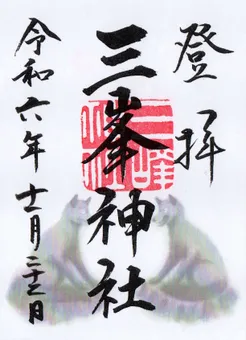 登拝
三峯神社
令和六年十一月二十三日